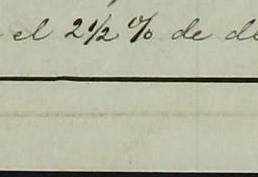 el 2½ % de